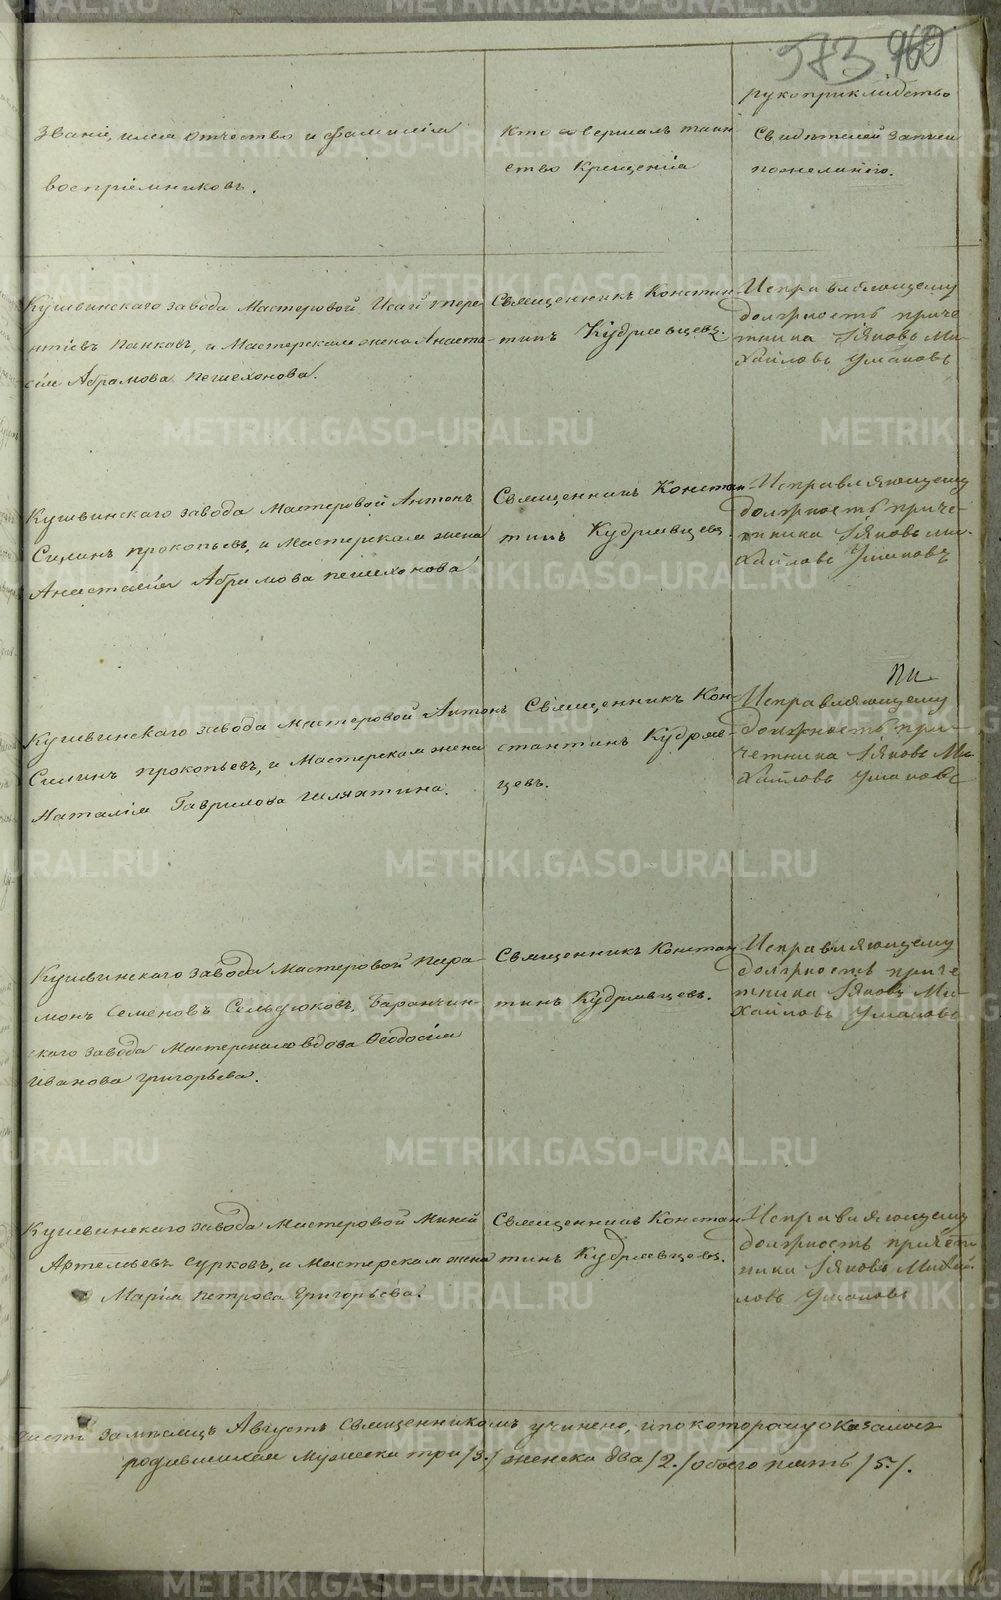 573 960
Званіе, имя отчество и фамилія
воспріемниковъ.
Кто совершалъ таин
ство Крещенія
рукоприкладство
Свидѣтелей записи
пожеланію.
Кушвинскаго завода Мастеровой Исай тере
нтіевъ Панковъ, и Мастерская жена Анаста
сія Абрамова пешехонова.
Священникъ Констан
тинъ Кудрявцевъ.
Исправляющему
должность приче
тника Іяковъ Ми
хайловъ Ушаковъ
Кушвинскаго завода Мастеровой Антонъ
Силинъ прокопьевъ, и Мастерская жена
Анастасія Абрамова пешехонова
Священникъ Констан
тинъ Кудрявцевъ.
Исправляющему
должность приче
тника Іяковъ ми
хайловъ Ушаковъ
Кушвинскаго завода Мастеровой Антонъ
Силинъ прокопьевъ, и Мастерская жена
Наталія Гаврилова Шляхтина.
Священникъ Кон
стантинъ Кудряв
цевъ.
Исправляющему
должность при
четника Іяковъ Ми
хайловъ Ушаковъ
Кушвинскаго завода Мастеровой пара
монъ Семеновъ Сельдюковъ, Баранчин
скаго завода Мастерская вдова Ѳеодосія
Иванова григорьева.
Священникъ Констан
тинъ Кудрявцевъ.
Исправляющему
должность приче
тника Іяковъ Ми
хайловъ Ушаковъ
Кушвинскаго завода Мастеровой Миней
Артемьевъ Сурковъ, и Мастерская жена
Марія петрова Григорьева.
Священникъ Констан
тинъ Кудрявцевъ.
Исправляющему
должность причет
ника Іяковъ Михай
ловъ Ушаковъ
за мѣсяцъ Августъ Священникомъ учинено, и по которому оказалось
родившихся мужеска три /3./ женска два /2./ обоего пять /5./.
METRIKI.GASO-URAL.RU